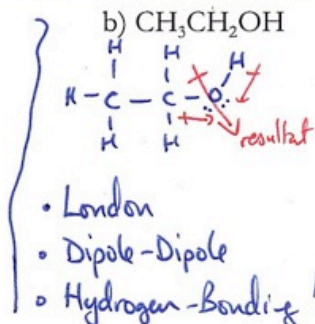 b) CH₃CH₂OH
H H H
H – C – C – O
H H
resultat
• London
• Dipole-Dipole
• Hydrogen-Bonding